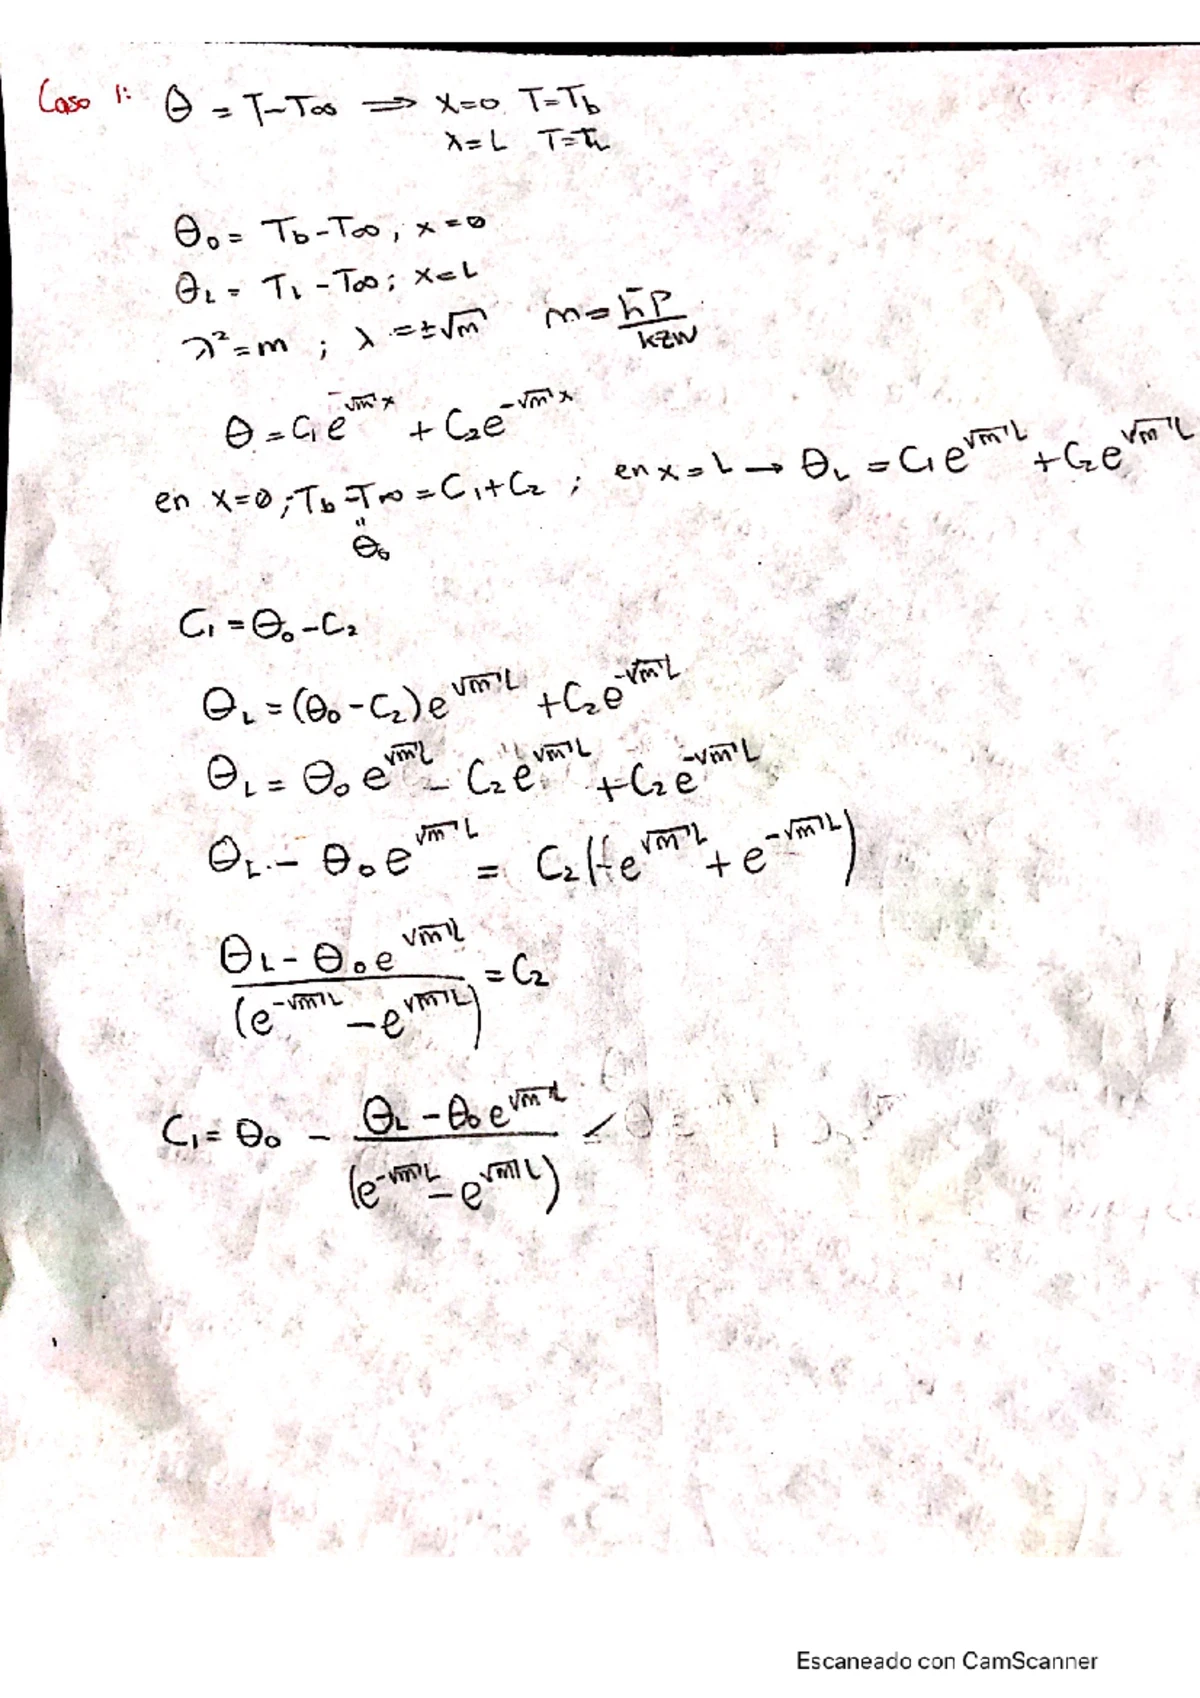 Caso 1: θ = T-T∞ ⟹ x=0 T=Tb
x=L T=TL
θ₀ = Tb-T∞, x=0
θL = TL-T∞; x=L
λ²=m ; λ=±√m m= h̄P/kzw
θ = C₁e^√m x + C₂e^-√m x
en x=0; Tb-T∞ = C₁+C₂ ; en x=L → θL = C₁e^√m L + C₂e^√m L
"
θ₀
C₁ = θ₀-C₂
θL = (θ₀-C₂)e^√m L + C₂e^-√m L
θL = θ₀e^√m L - C₂e^√m L + C₂e^-√m L
θL - θ₀e^√m L = C₂(-e^√m L + e^-√m L)
θL - θ₀e^√m L / (e^-√m L - e^√m L) = C₂
C₁ = θ₀ - θL - θ₀e^√m L / (e^-√m L - e^√m L)
Escaneado con CamScanner